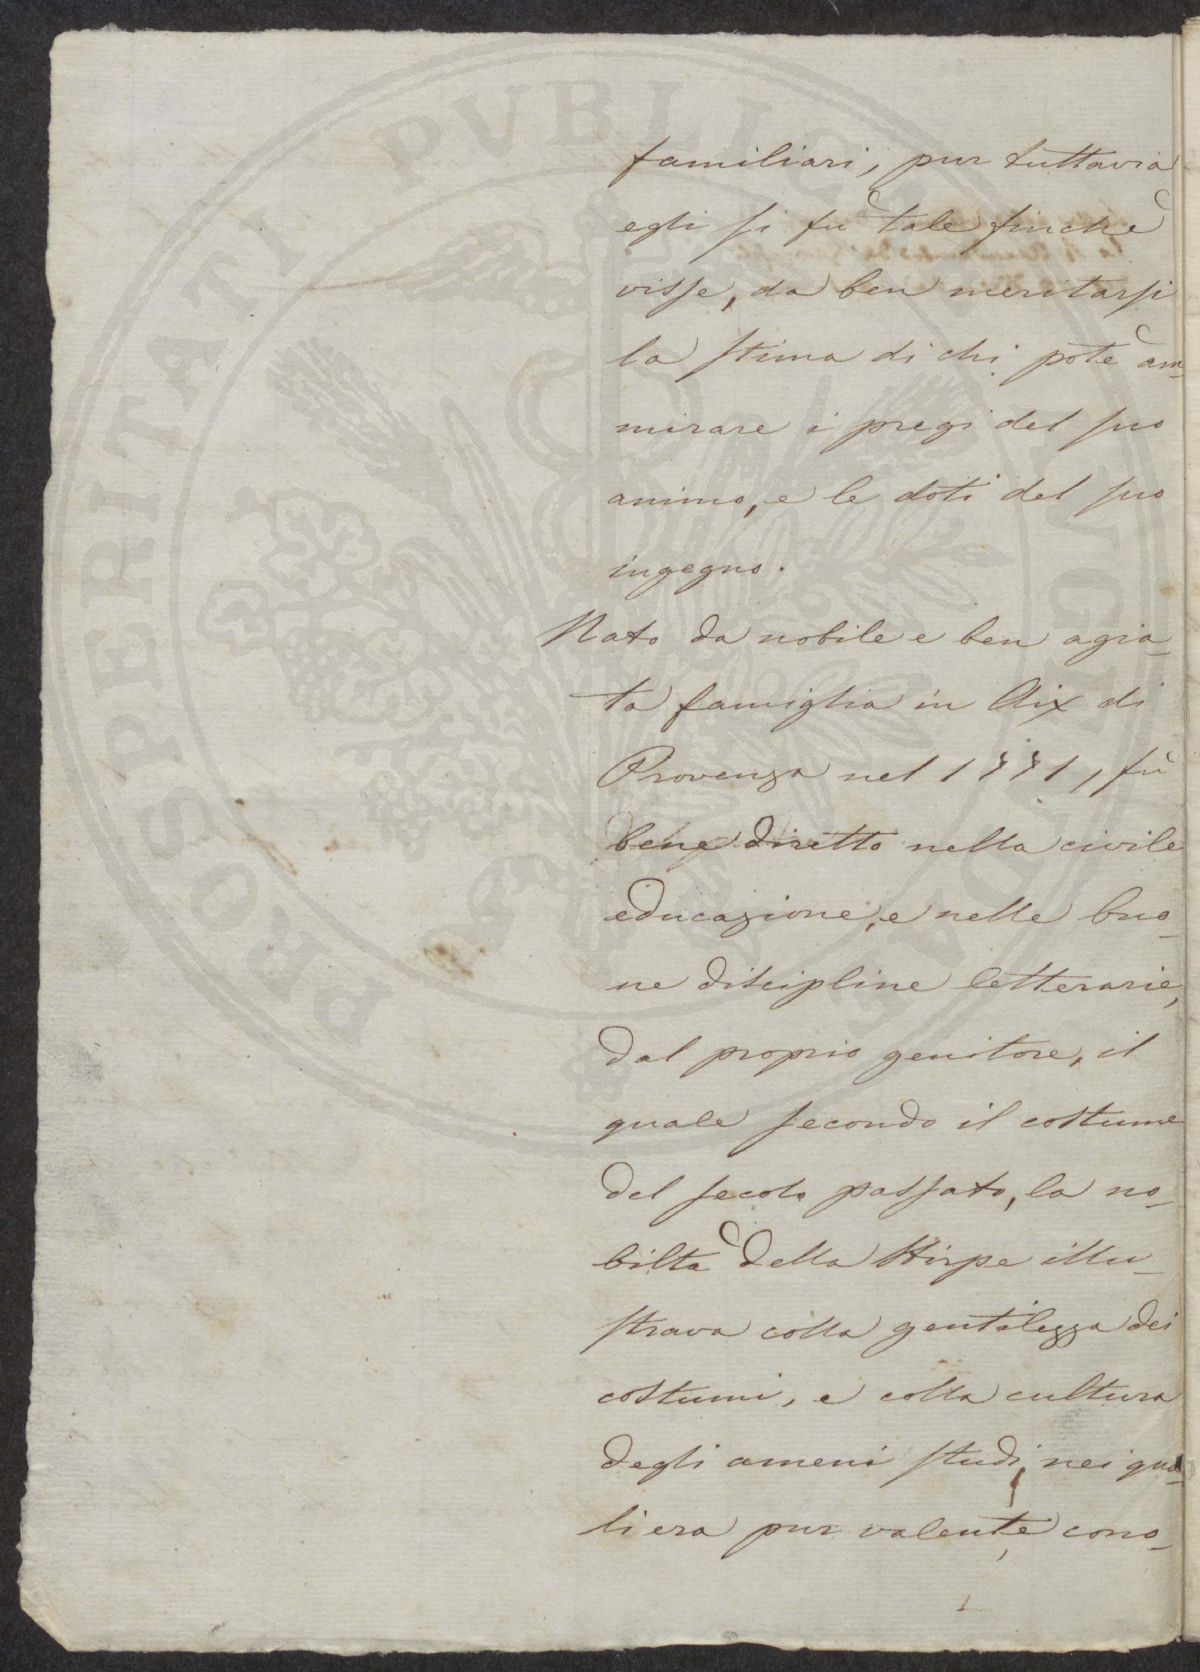 familiari, pur tuttavia
egli si fù tale finchè
visse, da ben meritarsi
la stima di chi potè am-
mirare i pregi del suo
animo, e le doti del suo
ingegno.
Nato da nobile e ben agia-
ta famiglia in Aix di
Provenza nel 1771, fù
bene diretto nella civile
educazione, e nelle buo-
ne discipline letterarie,
dal proprio genitore, il
quale secondo il costume
del secolo passato, la no-
biltà della stirpe illu-
strava colla gentilezza dei
costumi, e colla cultura
degli ameni studi, nei qua-
li era pur valente, cono-
PROSPERITATI PVBLICAE